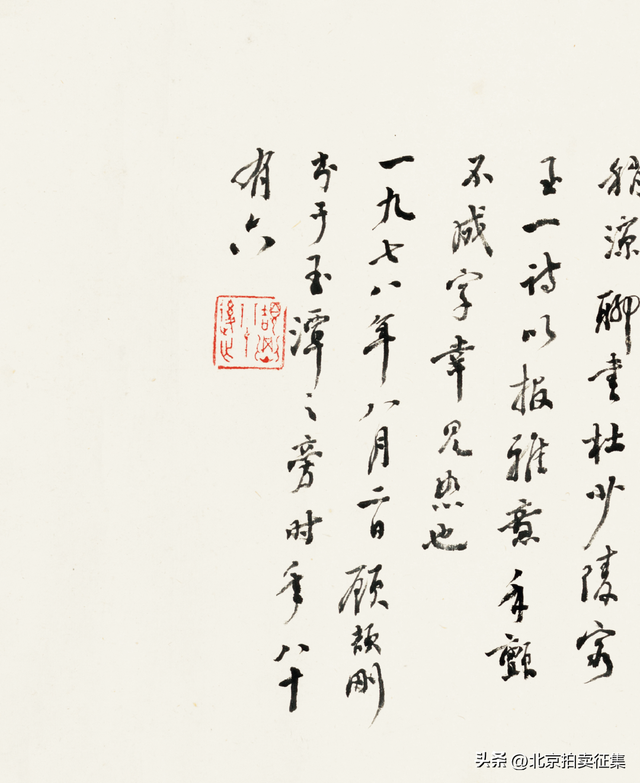 稍凉聊书杜少陵客
至一诗以报雅意手颤
不成字幸见恕也
一九七八年八月二日顾颉刚
书于玉潭之旁时年八十
有六
颉刚八十后作
头条 @北京拍卖征集